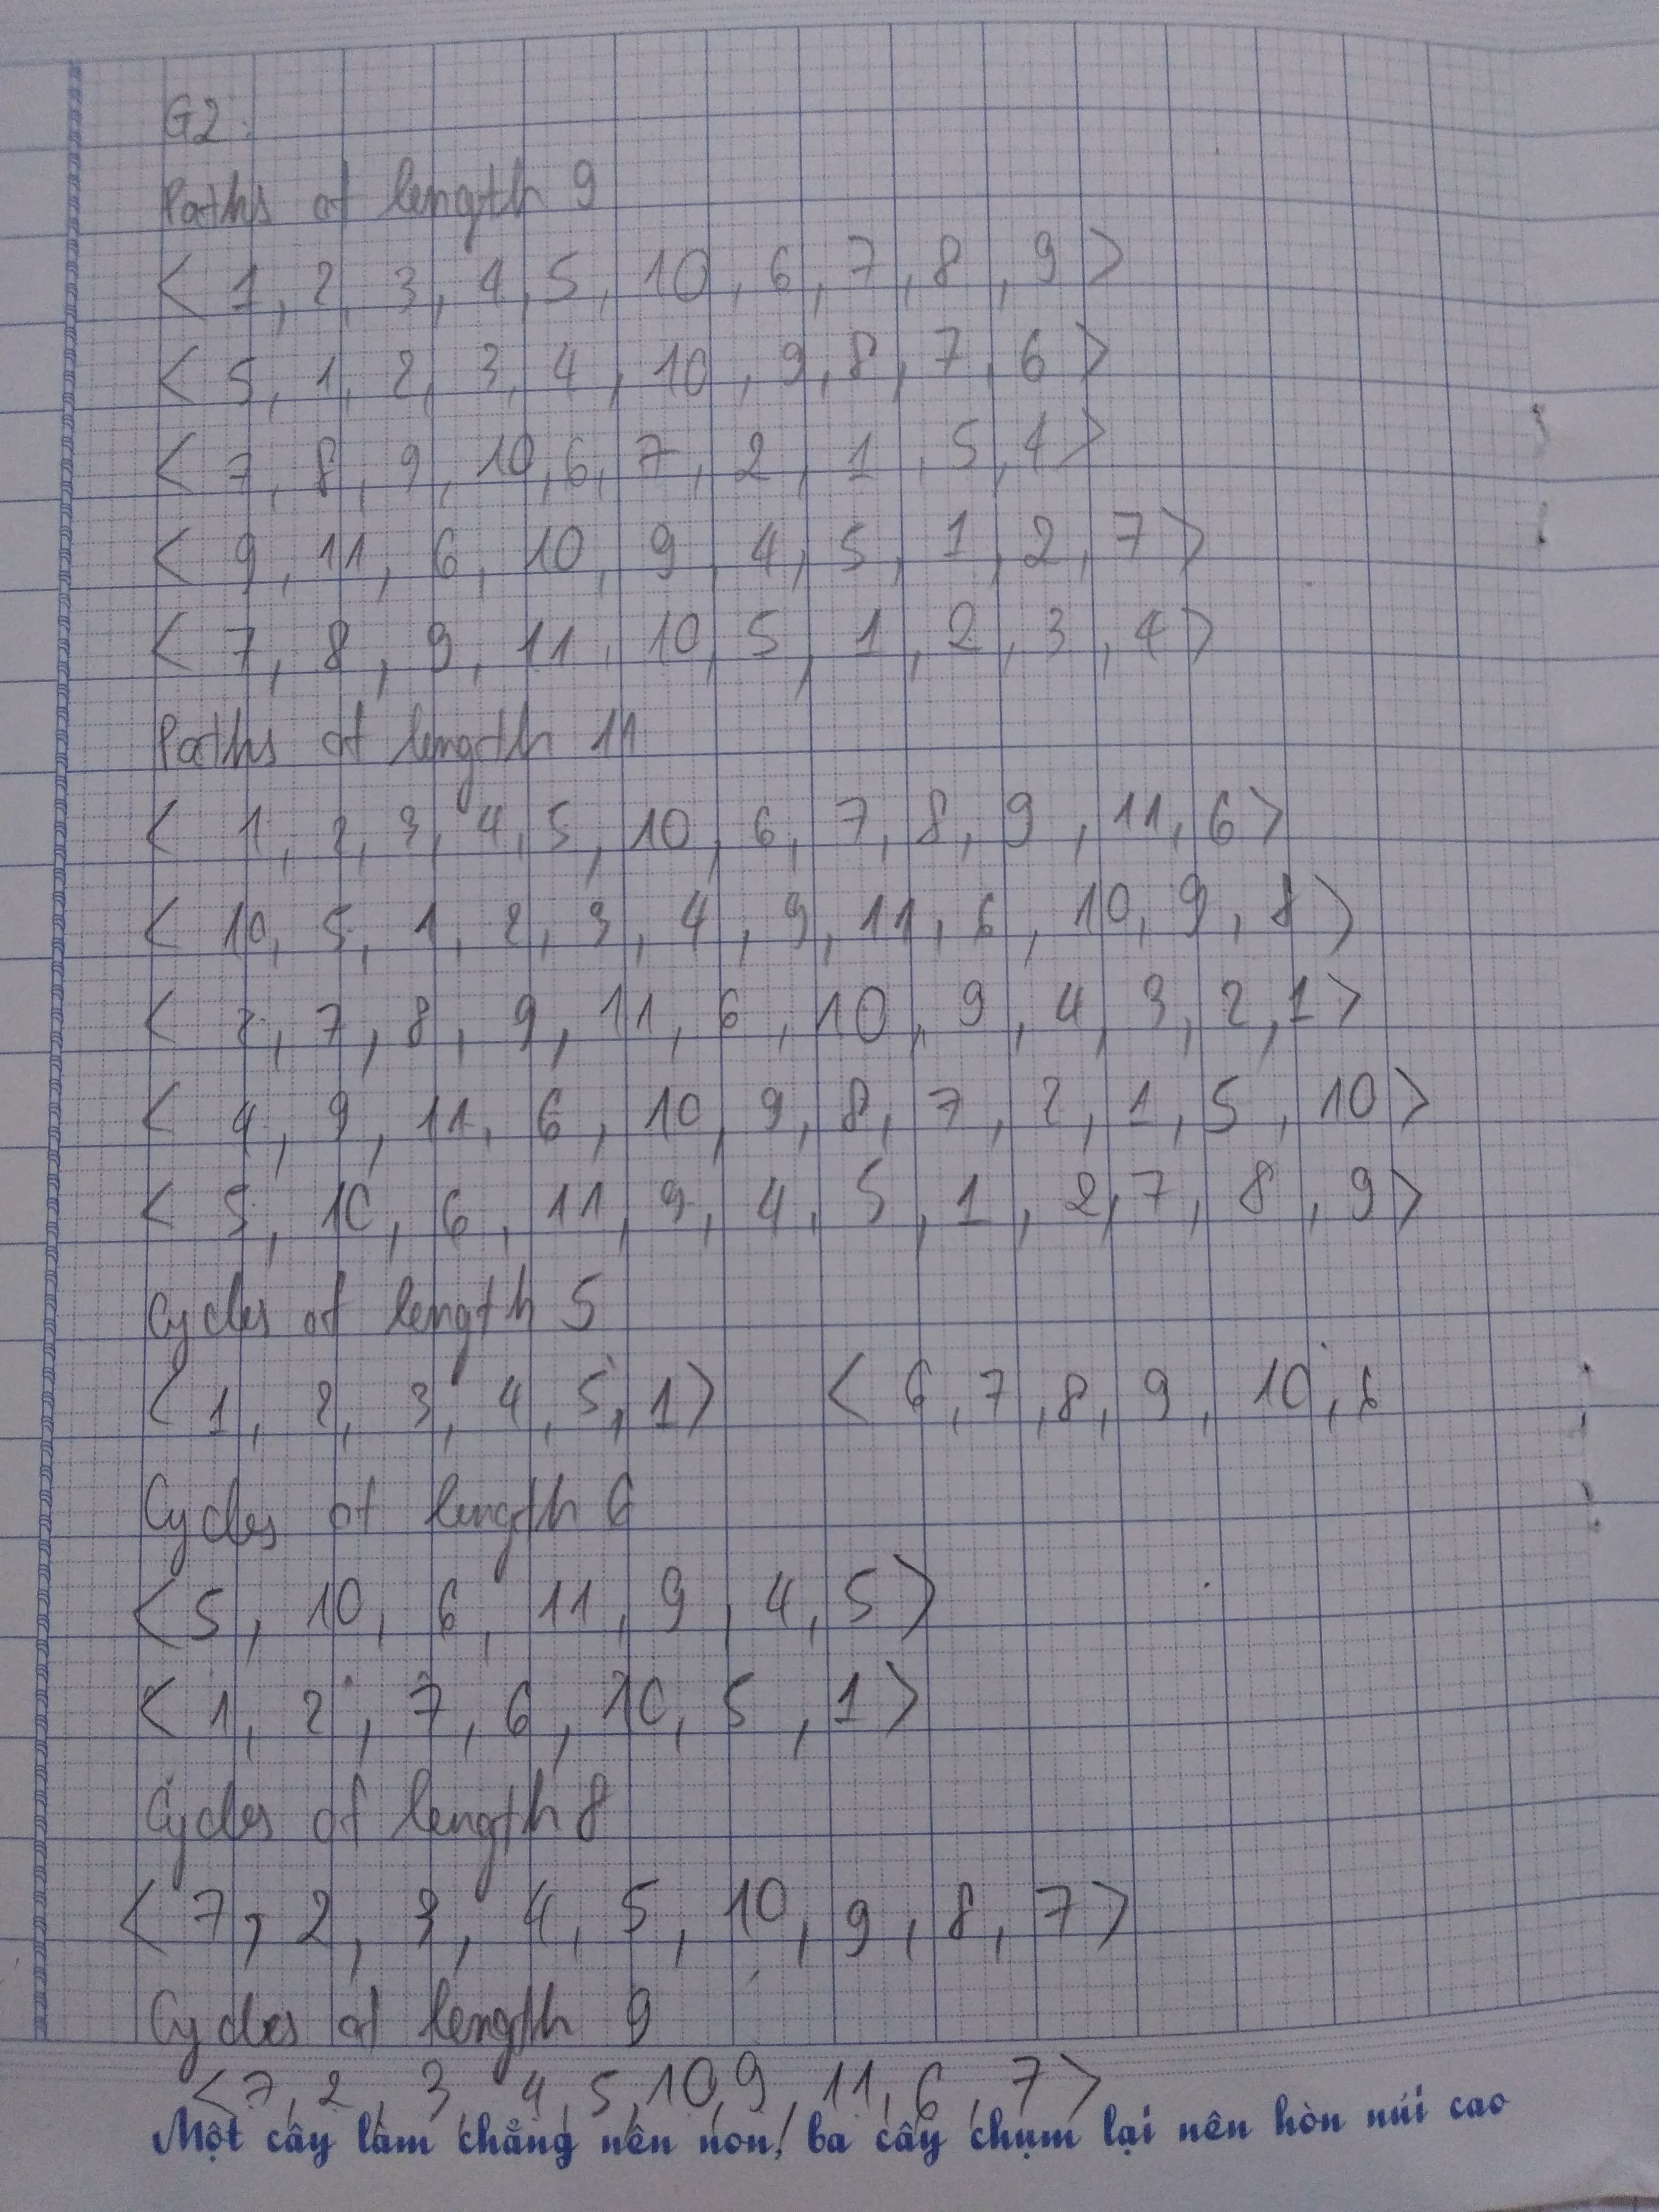 G2.
Paths of length 9
< 1, 2, 3, 4, 5, 10, 6, 7, 8, 9 >
< 5, 1, 2, 3, 4, 10, 9, 8, 7, 6 >
< 7, 8, 9, 10, 6, 7, 2, 1, 5, 4 >
< 9, 11, 6, 10, 9, 4, 5, 1, 2, 7 >
< 7, 8, 9, 11, 10, 5, 1, 2, 3, 4 >
Paths of length 11
< 1, 2, 3, 4, 5, 10, 6, 7, 8, 9, 11, 6 >
< 10, 5, 1, 2, 3, 4, 9, 11, 6, 10, 9, 8 >
< 2, 7, 8, 9, 11, 6, 10, 9, 4, 3, 2, 1 >
< 4, 9, 11, 6, 10, 9, 8, 7, 2, 1, 5, 10 >
< 5, 10, 6, 11, 9, 4, 5, 1, 2, 7, 8, 9 >
Cycles of length 5
< 1, 2, 3, 4, 5, 1 > < 6, 7, 8, 9, 10, 6
Cycles of length 6
< 5, 10, 6, 11, 9, 4, 5 >
< 1, 2, 7, 6, 10, 5, 1 >
Cycles of length 8
< 7, 2, 3, 4, 5, 10, 9, 8, 7 >
Cycles of length 9
< 7, 2, 3, 4, 5, 10, 9, 11, 6, 7 >
Một cây làm chẳng nên non, ba cây chụm lại nên hòn núi cao